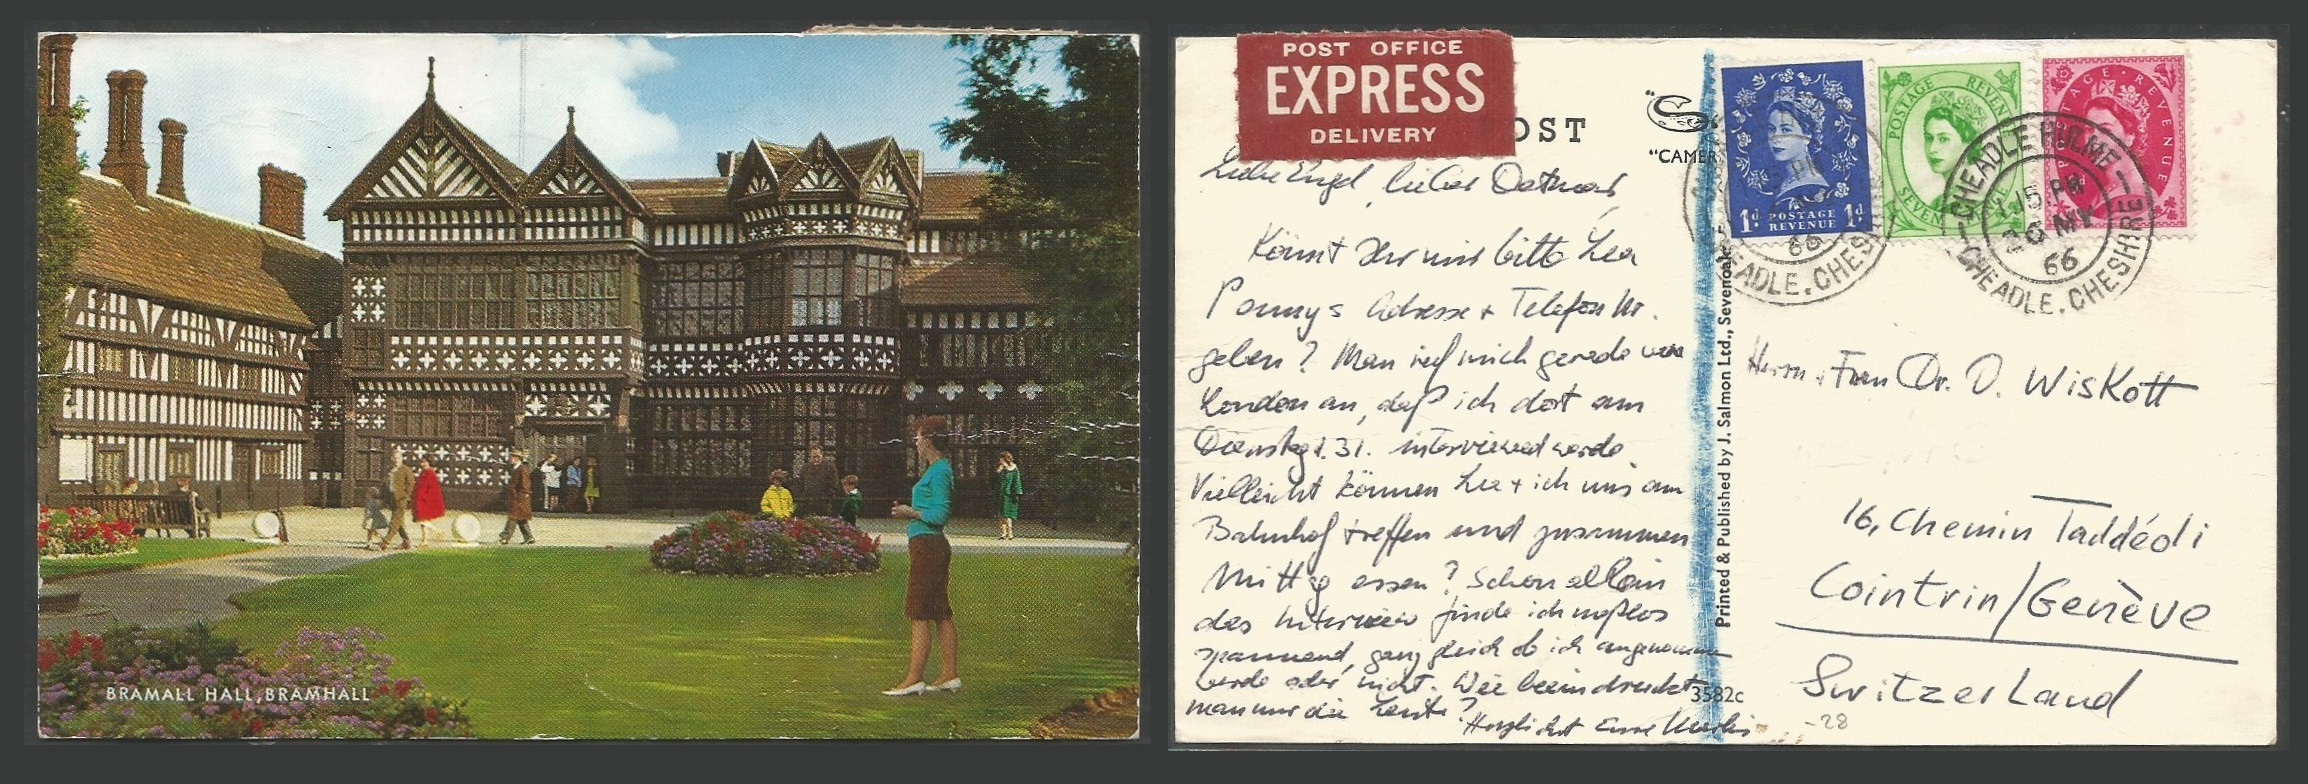 BRAMALL HALL, BRAMHALL
POST OFFICE
EXPRESS
DELIVERY
OST
"CAMER
Liebe Engel, lieber Dietmar,
Könnt Ihr mir bitte Lea
Ponnys Adresse + Telefon Nr.
geben? Man rief mich gerade von
London an, daß ich dort am
Dienstag d. 31. interviewed werde.
Vielleicht können Lea + ich uns am
Bahnhof treffen und zusammen
Mittag essen? Schon allein
das Interview finde ich maßlos
spannend, ganz gleich ob ich angenommen
werde oder nicht. Wie beeindruckt
man nur die Leute?
Herzlichst Eure
Printed & Published by J. Salmon Ltd., Sevenoaks
3582c
1d POSTAGE REVENUE 1d
POSTAGE REVENUE
SEVEN
POSTAGE REVENUE
CHEADLE HULME
15 PM
20 MY
66
CHEADLE. CHESHIRE
PM
66
EADLE. CHES
Herrn + Frau Dr. D. Wiskott
16, Chemin Taddéoli
Cointrin/Genève
Switzerland
-28